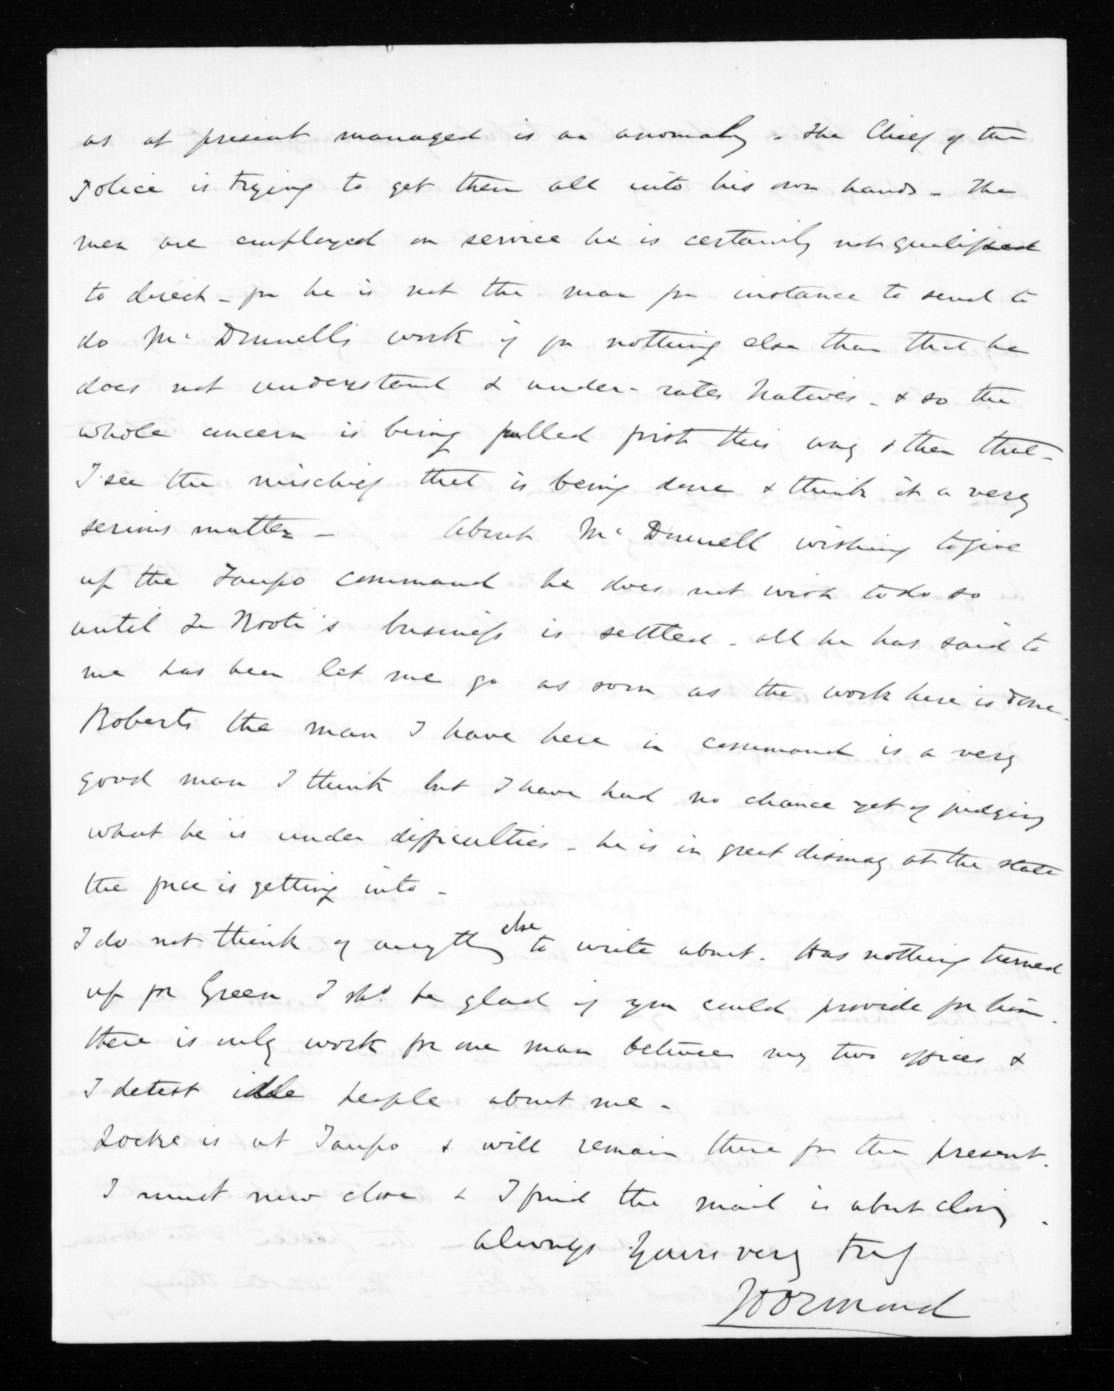 as at present managed is an anomaly. The Chief of the
Police is trying to get them all into his own hands - The
men are employed on service he is certainly not qualified
to direct - for he is not the man for instance to send to
do McDonnell's work if for nothing else than that he
does not understand & under-rates Natives - & so the
whole concern is being pulled first this way & then that -
I see the mischief that is being done & think it a very
serious matter - About McDonnell wishing to give
up the Taupo command he does not wish to do so
until Te Kooti's business is settled - all he has said to
me has been let me go as soon as the work here is done.
Roberts the man I have here in command is a very
good man I think but I have had no chance yet of judging
what he is under difficulties - he is in great dismay at the state
the force is getting into -
I do not think of anything else to write about. Has nothing turned
up for Green I shd. be glad if you could provide for him.
there is only work for one man between my two offices &
I detest idle people about me -
Locke is at Taupo & will remain there for the present.
I must now close & I find the mail is about closing.
Always Yours very truly
JD Ormond